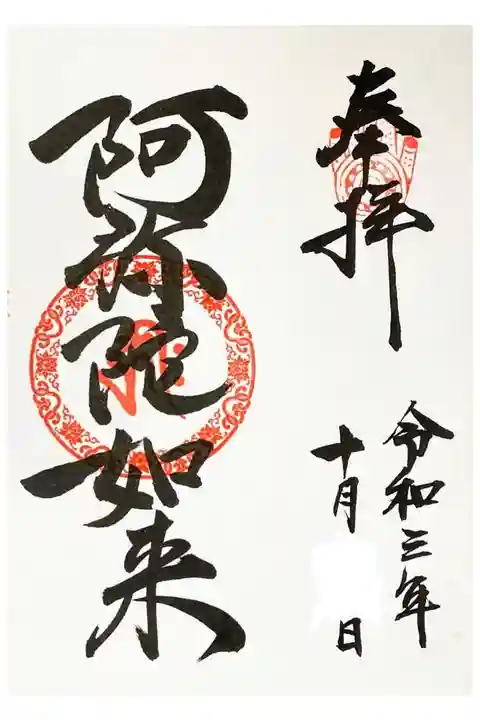 奉拝
令和三年
十月 日
阿弥陀如来